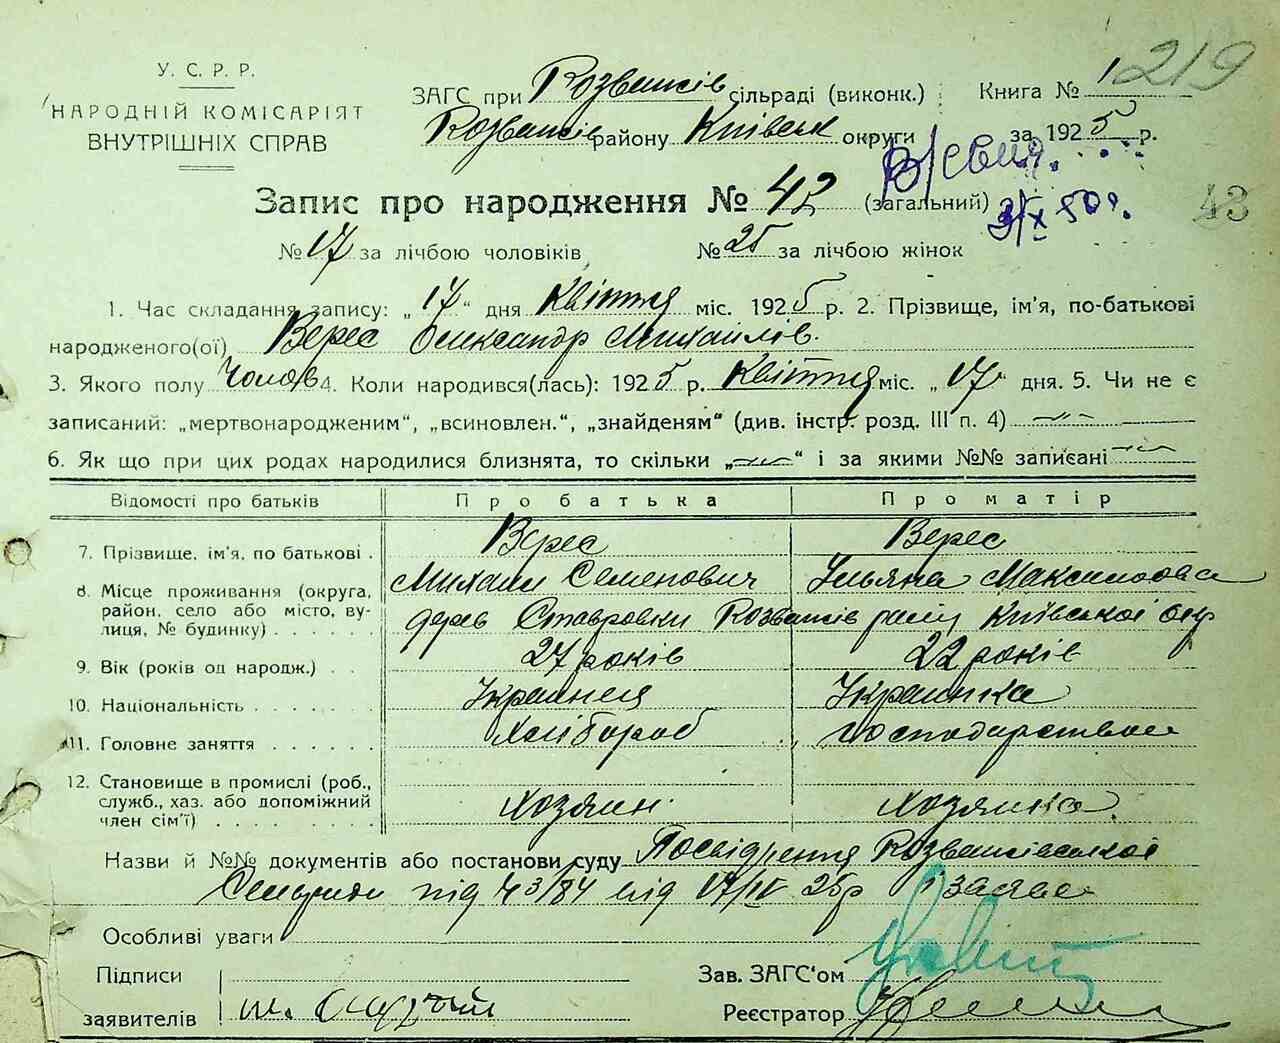 219
У. С. Р. Р.
НАРОДНІЙ КОМІСАРІЯТ
ВНУТРІШНІХ СПРАВ
ЗАГС при Розважів сільраді (виконк.) Книга № 1
Розважів району Київськ округи за 1925 р.
3/X 50р.
Запис про народження № 42 (загальний)
43
№ 17 за лічбою чоловіків № 25 за лічбою жінок
1. Час складання запису: „17“ дня Квітня міс. 1925 р. 2. Прізвище, ім'я, по-батькові
народженого(ої) Верес Олександр Михайлів.
3. Якого полу Чолов 4. Коли народився(лась): 1925 р. Квітня міс. „17“ дня. 5. Чи не є
записаний: „мертвонародженим“, „всиновлен.“, „знайденям“ (див. інстр. розд. III п. 4)
6. Як що при цих родах народилися близнята, то скільки „ “ і за якими №№ записані
Відомості про батьків Про батька Про матір
7. Прізвище, ім'я, по батькові . Верес Верес
Михаил Семенович Ульяна Максимовна
8. Місце проживання (округа,
район, село або місто, ву-
лиця, № будинку) . . . . . .
дерев Ставровки Розважів району Київської окр
9. Вік (років од народж.) . . 27 років 22 років
10. Національність . . . . . . . Украинец Украинка
11. Головне заняття . . . . . . Хлібороб господарством
12. Становище в промислі (роб.,
служб., хаз. або допоміжний
член сім'ї) . . . . . . . . Хозяин. Хозяйка.
Назви й №№ документів або постанови суду Посвідчення Розважівської
під 43/84 від 17/IV 25р і заява
Особливі уваги
Підписи
заявителів
Зав. ЗАГС'ом
Реєстратор